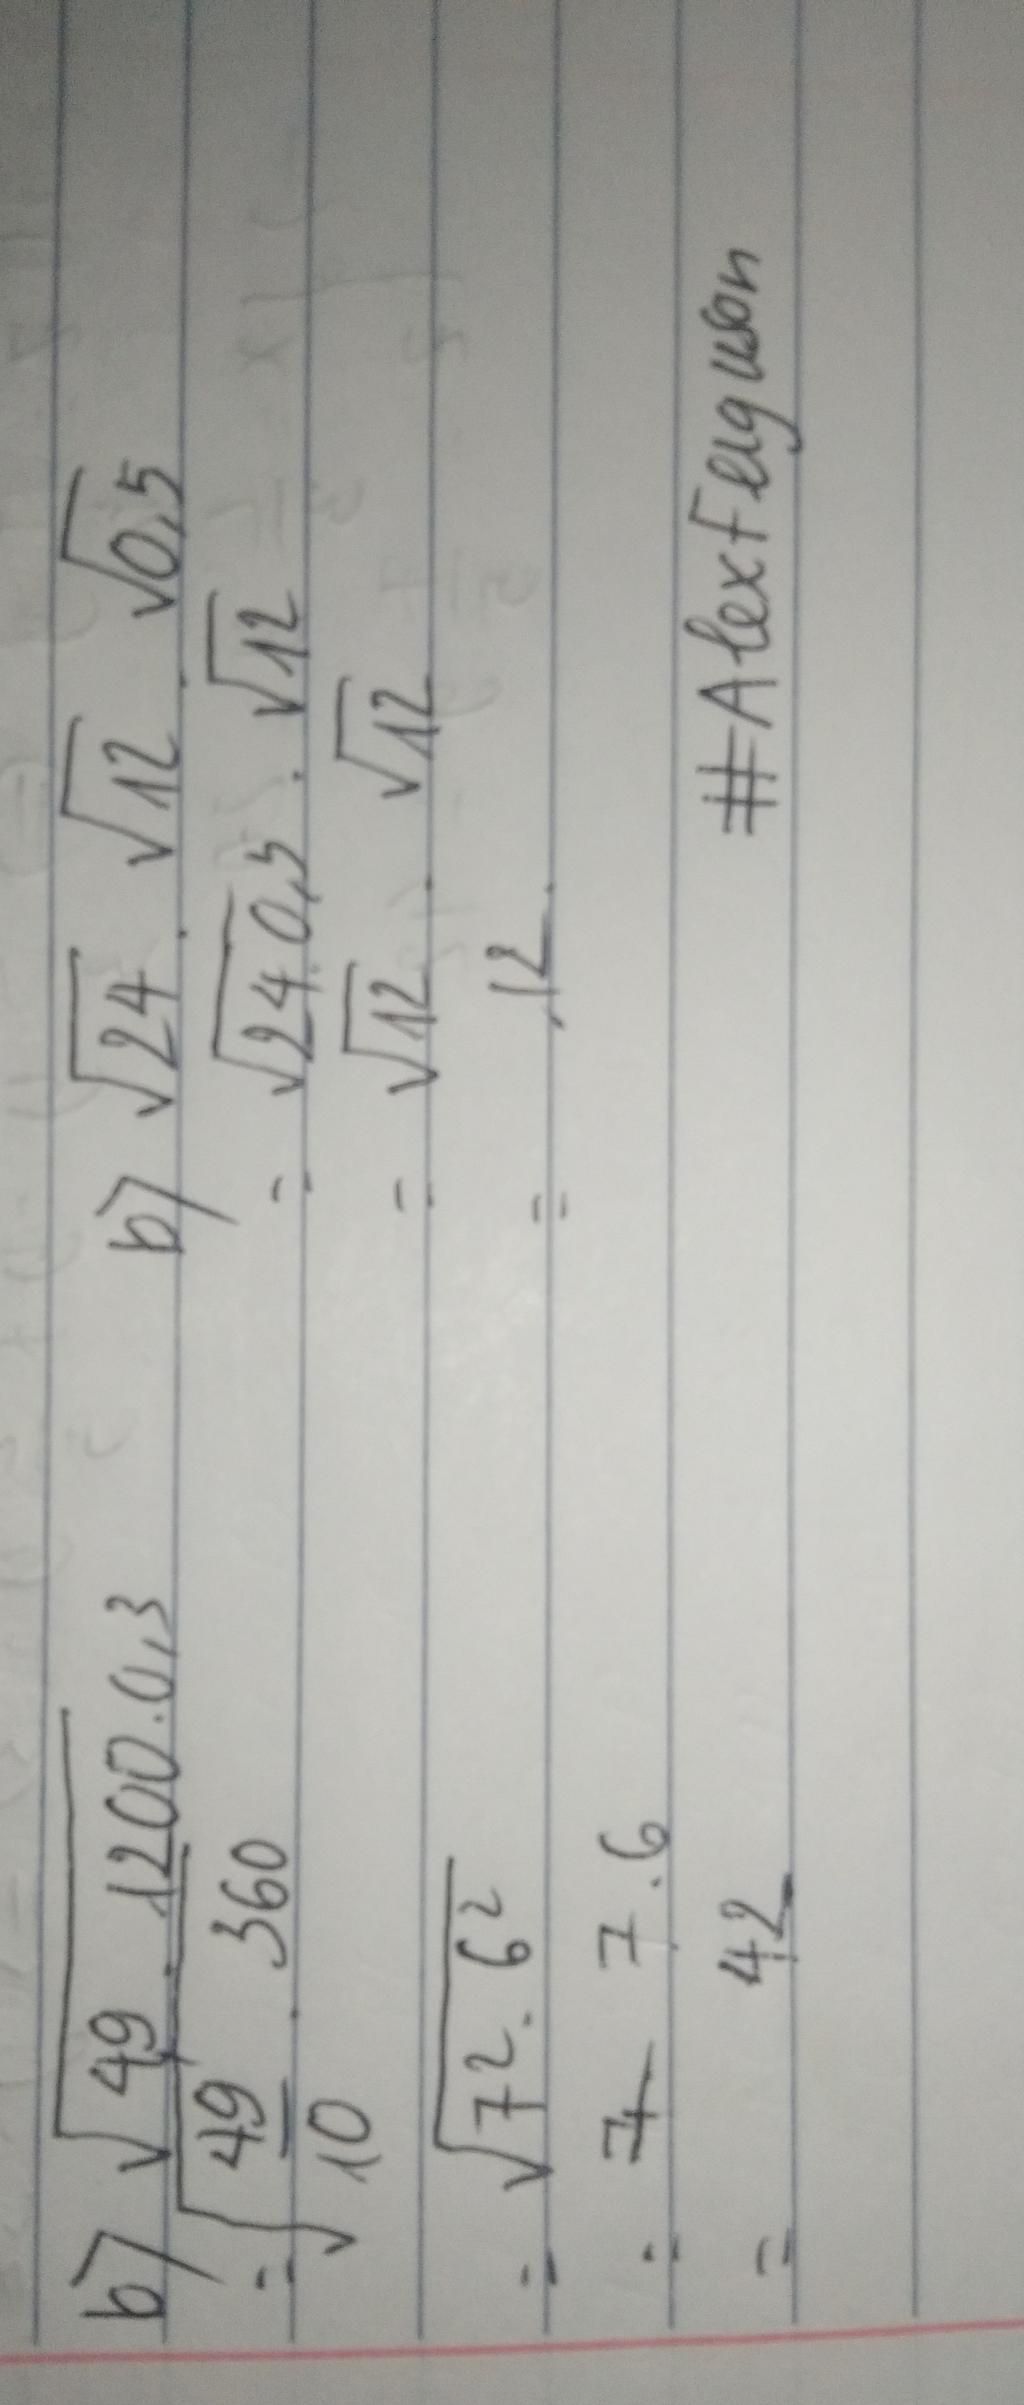 b) √49 . 1200 . 0,3
= √49/10 . 360
= √7² . 6²
= 7 7 . 6
= 42
b) √24 . √12 . √0,5
= √24 . 0,5 . √12
= √12 . √12
= 12
#AlexFerguson